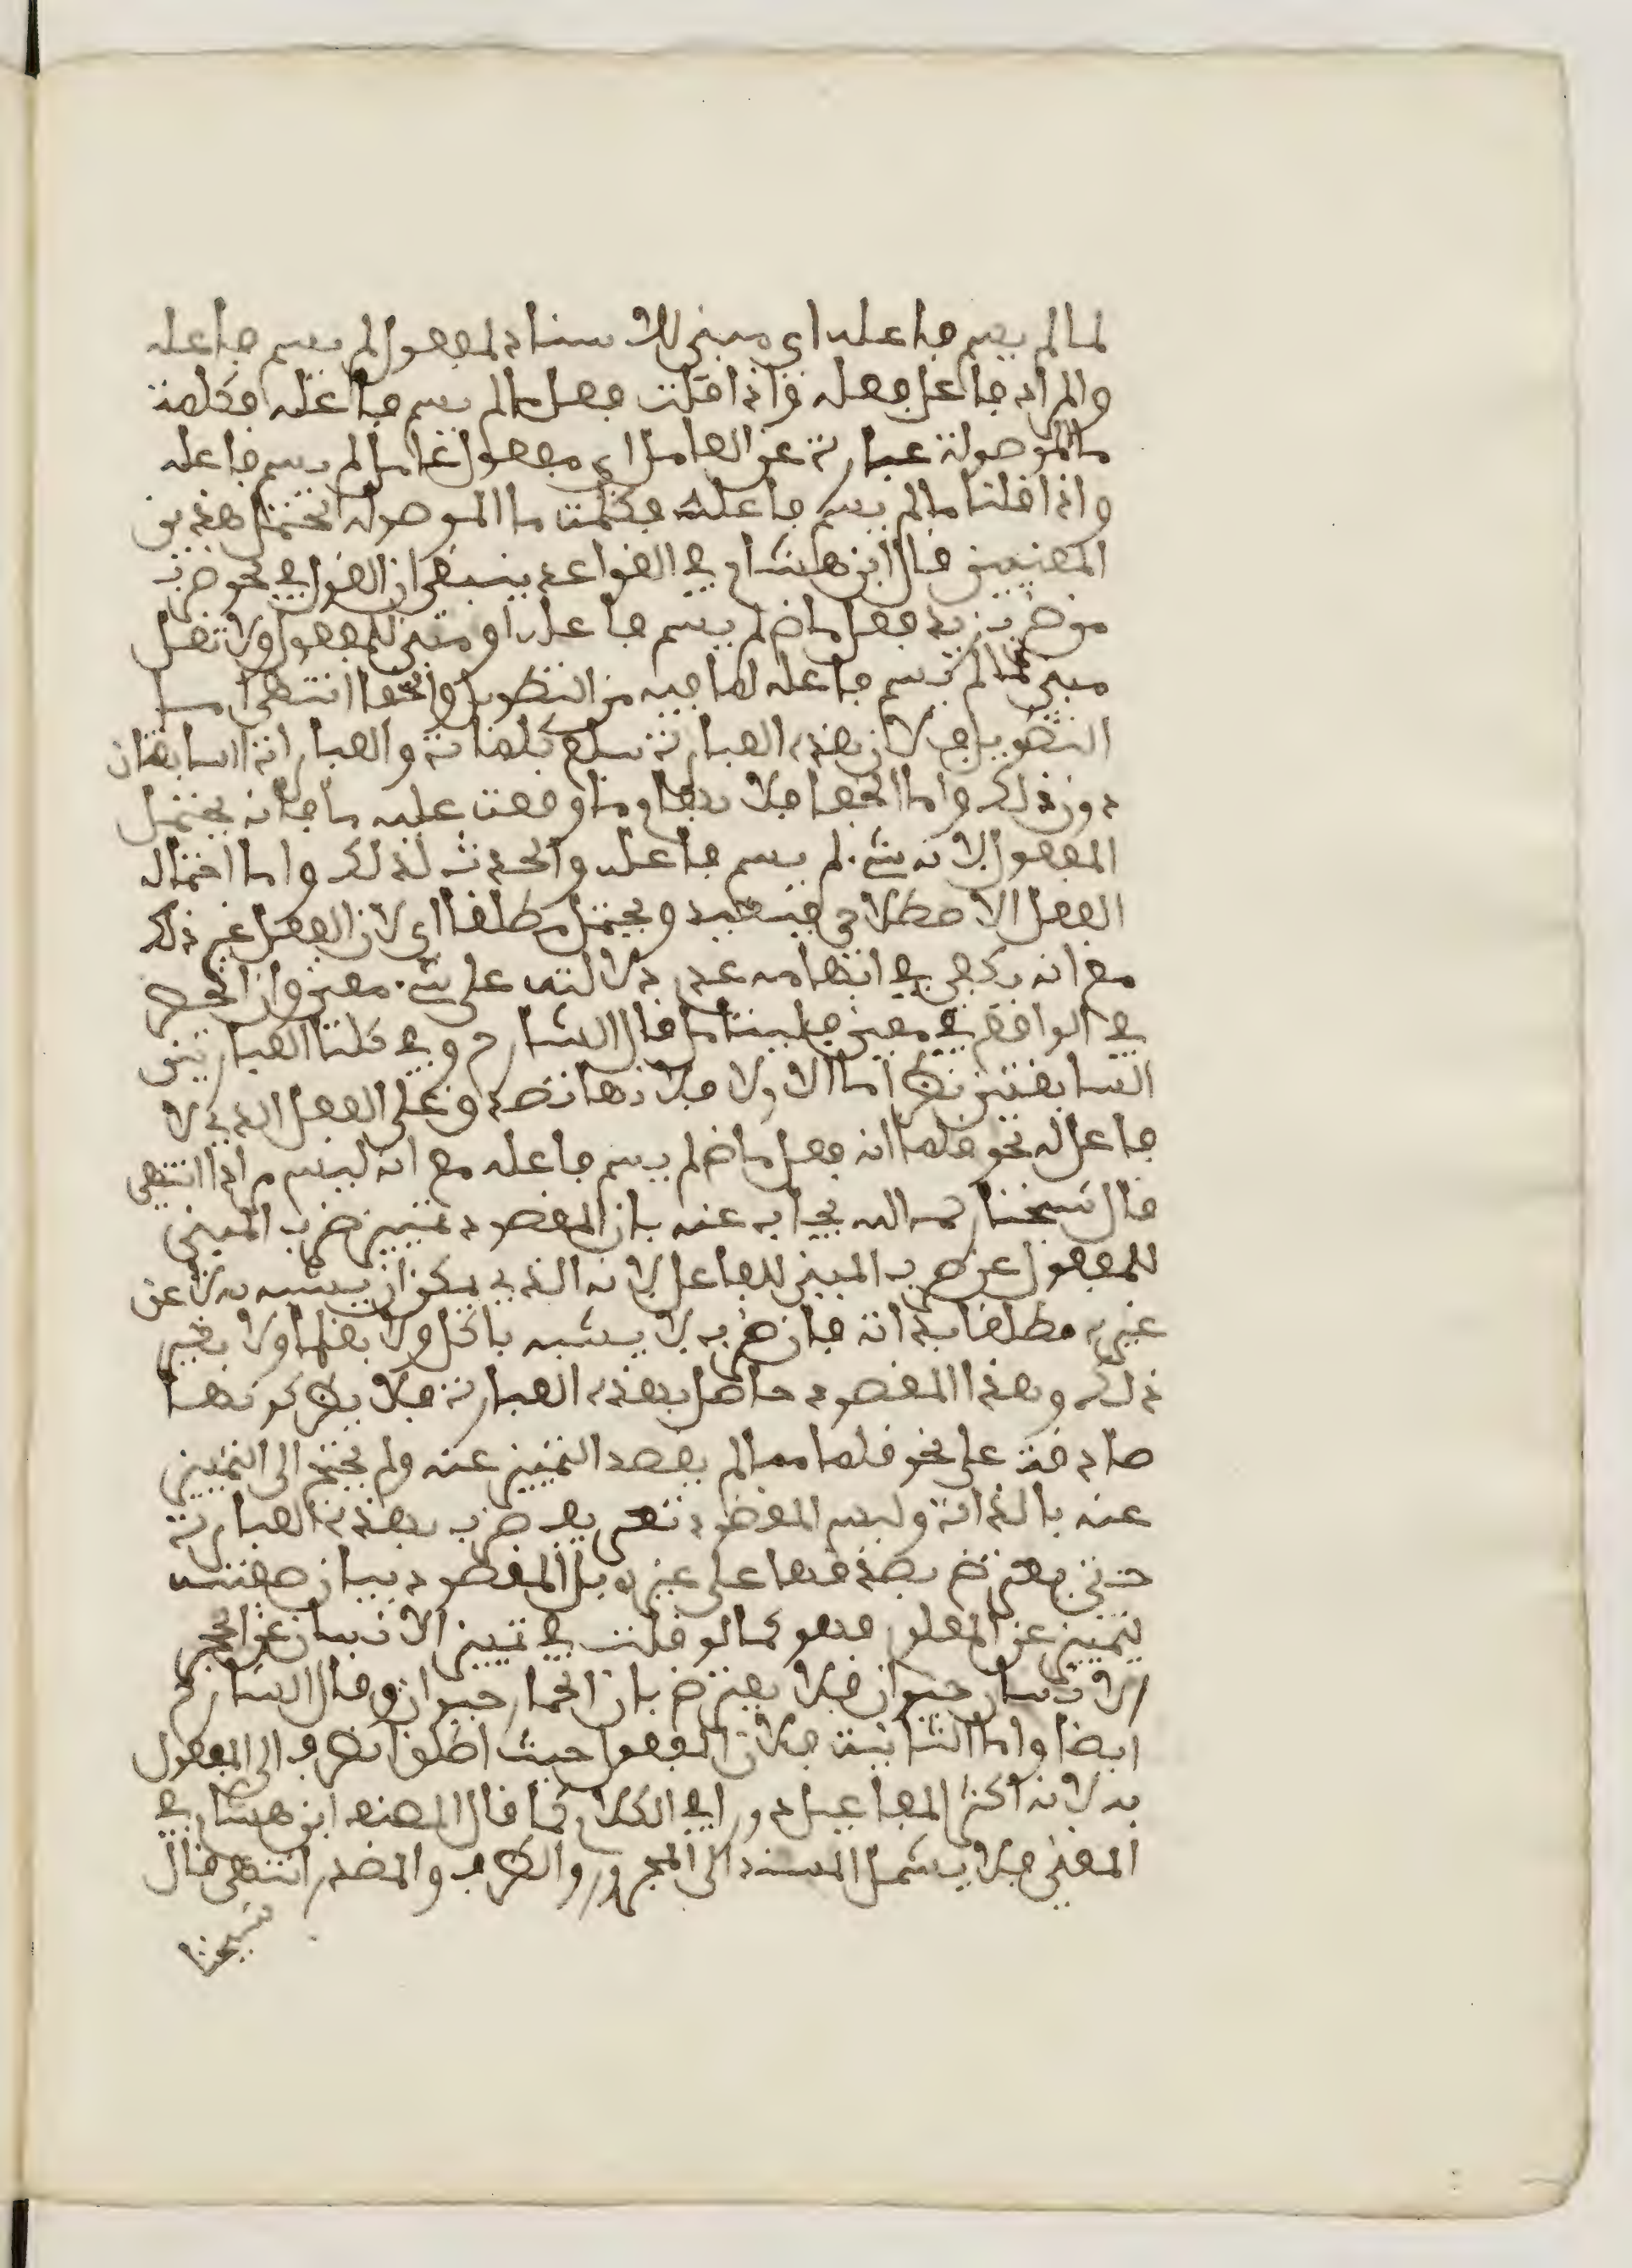 لما لم يسم فاعله اي مبني للاسناد لمفعول لم يسم فاعله
والمراد فاعل فعله واذا قلت فعل ما لم يسم فاعله فكلمة
ما الموصولة عبارة عن العامل اي مفعول عامل لم يسم فاعله
واذا قلنا ما لم يسم فاعله فكلمة ما الموصولة تحتمل هذين
المعنيين قال ابن هشام في القواعد ينبغي ان تقول في نحو ضرب
من ضرب زيد فعل ماض لم يسم فاعله او مبني للمفعول ولا تقل
مبني لما لم يسم فاعله لما فيه من التطويل والخفا انتهى اما
التطويل فلان هذه العبارة سبع كلمات والعبارتان السابقتان
دون ذلك واما الخفا فلابهام ما وقعت عليه ما فانه يحتمل
المفعول به لانه شيء لم يسم فاعله والحدث لذلك واما احتمال
الفعل الاصطلاحي فبعيد ويحتمل مطلقا اي لان الفعل غير ذلك
مع انه يكفي في ابهامه عدم دلالته على شيء معين وان انحصر
في الواقع في معين فليتامل قال الشارح وفي كلتا العبارتين
السابقتين نظر اما الاولى فلانها تصدق على الفعل الذي لا
فاعل له نحو قلما انه فعل ماض لم يسم فاعله مع انه ليس مرادا انتهى
قال شيخنا رحمه الله يجاب عنه بان المقصود تمييز ضرب المبني
للمفعول عن ضرب المبني للفاعل لانه الذي يمكن ان يشتبه به لا عن
غيره مطلقا بدانة فان ضرب لا يشتبه باكل ولا بقلما ولا بغير
ذلك وهذا المقصود حاصل بهذه العبارة فلا يضر كونها
صادقة على نحو قلما مما لم يقصد التمييز عنه ولم يحتج الى التمييز
عنه بالذات وليس المقصود تعريف ضرب بهذه العبارة
حتى يعترض بصدقها على غيره بل المقصود بيان صفته
ليتميز عن المعلوم فهو كما لو قلت في تمييز الانسان عن الحجر
الانسان حيوان فلا يعترض بان الحمار حيوان وقال الشارح
ايضا واما الثانية فلان المفعول حيث اطلق انصرف الى المفعول
به لانه اكثر المفاعيل دورا في الكلام كما قال المصنف ابن هشام في
المغني فلا يشمل المسند الى المجرور والظرف والمصدر انتهى قال
شيخنا